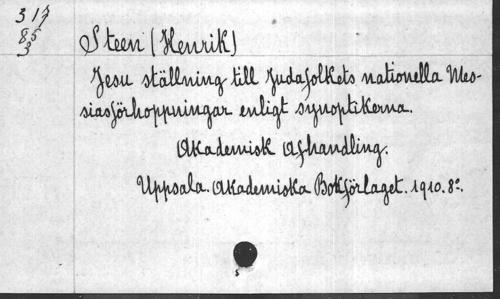 317
85
3
Steen (Henrik)
Jesu ställning till Judafolkets nationella Mes-
siasförhoppningar enligt synoptikerna.
Akademisk Afhandling.
Uppsala. Akademiska Bokförlaget. 1910. 8º.